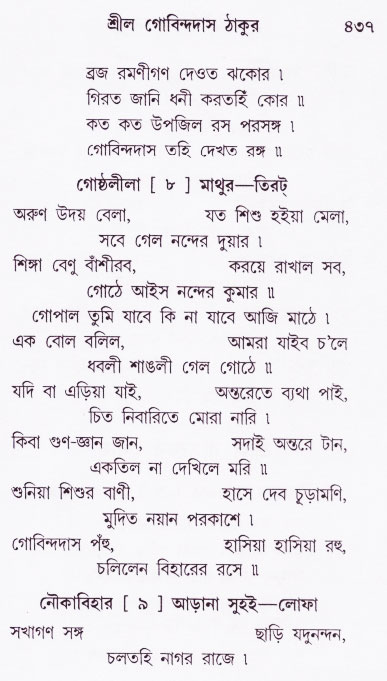 শ্রীল গোবিন্দদাস ঠাকুর ৪৩৭
ব্রজ রমণীগণ দেওত ঝকোর ।
গিরত জানি ধনী করতহিঁ কোর ॥
কত কত উপজিল রস পরসঙ্গ ।
গোবিন্দদাস তহি দেখত রঙ্গ ॥
গোষ্ঠলীলা [ ৮ ] মাথুর—তিরট্
অরুণ উদয় বেলা, যত শিশু হইয়া মেলা,
সবে গেল নন্দের দুয়ার ।
শিঙ্গা বেণু বাঁশীরব, করয়ে রাখাল সব,
গোঠে আইস নন্দের কুমার ॥
গোপাল তুমি যাবে কি না যাবে আজি মাঠে ।
এক বোল বলিল, আমরা যাইব চ'লে
ধবলী শাঙলী গেল গোঠে ॥
যদি বা এড়িয়া যাই, অন্তরেতে ব্যথা পাই,
চিত নিবারিতে মোরা নারি ।
কিবা গুণ-জ্ঞান জান, সদাই অন্তরে টান,
একতিল না দেখিলে মরি ॥
শুনিয়া শিশুর বাণী, হাসে দেব চূড়ামণি,
মুদিত নয়ান পরকাশে ।
গোবিন্দদাস পঁহু, হাসিয়া হাসিয়া রহু,
চলিলেন বিহারের রসে ॥
নৌকাবিহার [ ৯ ] আড়ানা সুহই—লোফা
সখাগণ সঙ্গ ছাড়ি যদুনন্দন,
চলতহি নাগর রাজে ।